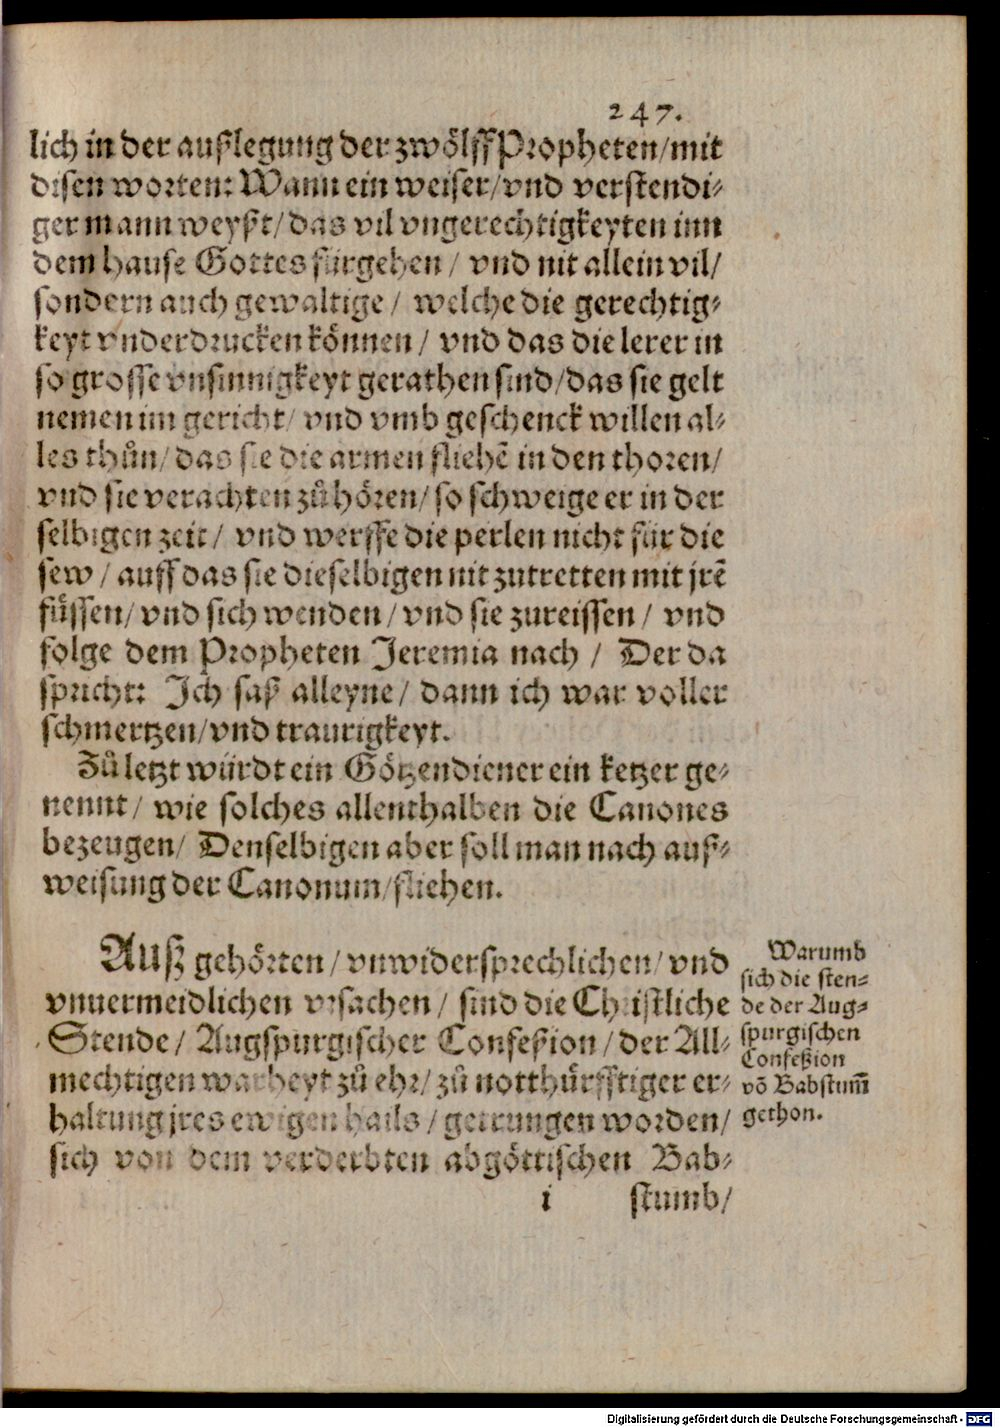 247.
lich in der außlegung der zwölff Propheten/mit
disen worten: Wann ein weiser/vnd verstendi⸗
ger mann weyßt/das vil vngerechtigkeyten inn
dem hause Gottes fürgehen/ vnd nit allein vil/
sondern auch gewaltige/ welche die gerechtig⸗
keyt vnderdrucken können/ vnd das die lerer in
so grosse vnsinnigkeyt gerathen sind/das sie gelt
nemen im gericht/ vnd vmb geschenck willen al⸗
les thůn/das sie die armen fliehẽ in den thoren/
vnd sie verachten zů hören/so schweige er in der
selbigen zeit/ vnd werffe die perlen nicht für die
sew/auff das sie dieselbigen nit zutretten mit jrẽ
füssen/vnd sich wenden/vnd sie zureissen/ vnd
folge dem Propheten Jeremia nach/ Der da
spricht: Ich saß alleyne/ dann ich war voller
schmertzen/vnd traurigkeyt.
Zů letzt würdt ein Götzendiener ein ketzer ge⸗
nennt/ wie solches allenthalben die Canones
bezeugen/ Denselbigen aber soll man nach auß⸗
weisung der Canonum/fliehen.
Auß gehörten/vnwidersprechlichen/vnd
vnuermeidlichen vrsachen/ sind die Christliche
Stende/ Augspurgischer Confeßion/der All⸗
mechtigen warheyt zů ehr/zů notthürfftiger er⸗
haltung jres ewigen hails/getrungen worden/
sich von dem verderbten abgöttischen Bab⸗
Warumb
sich die sten⸗
de der Aug⸗
spurgischen
Confeßion
võ Babstum̃
gethon.
i stumb/
Digitalisierung gefördert durch die Deutsche Forschungsgemeinschaft - DFG